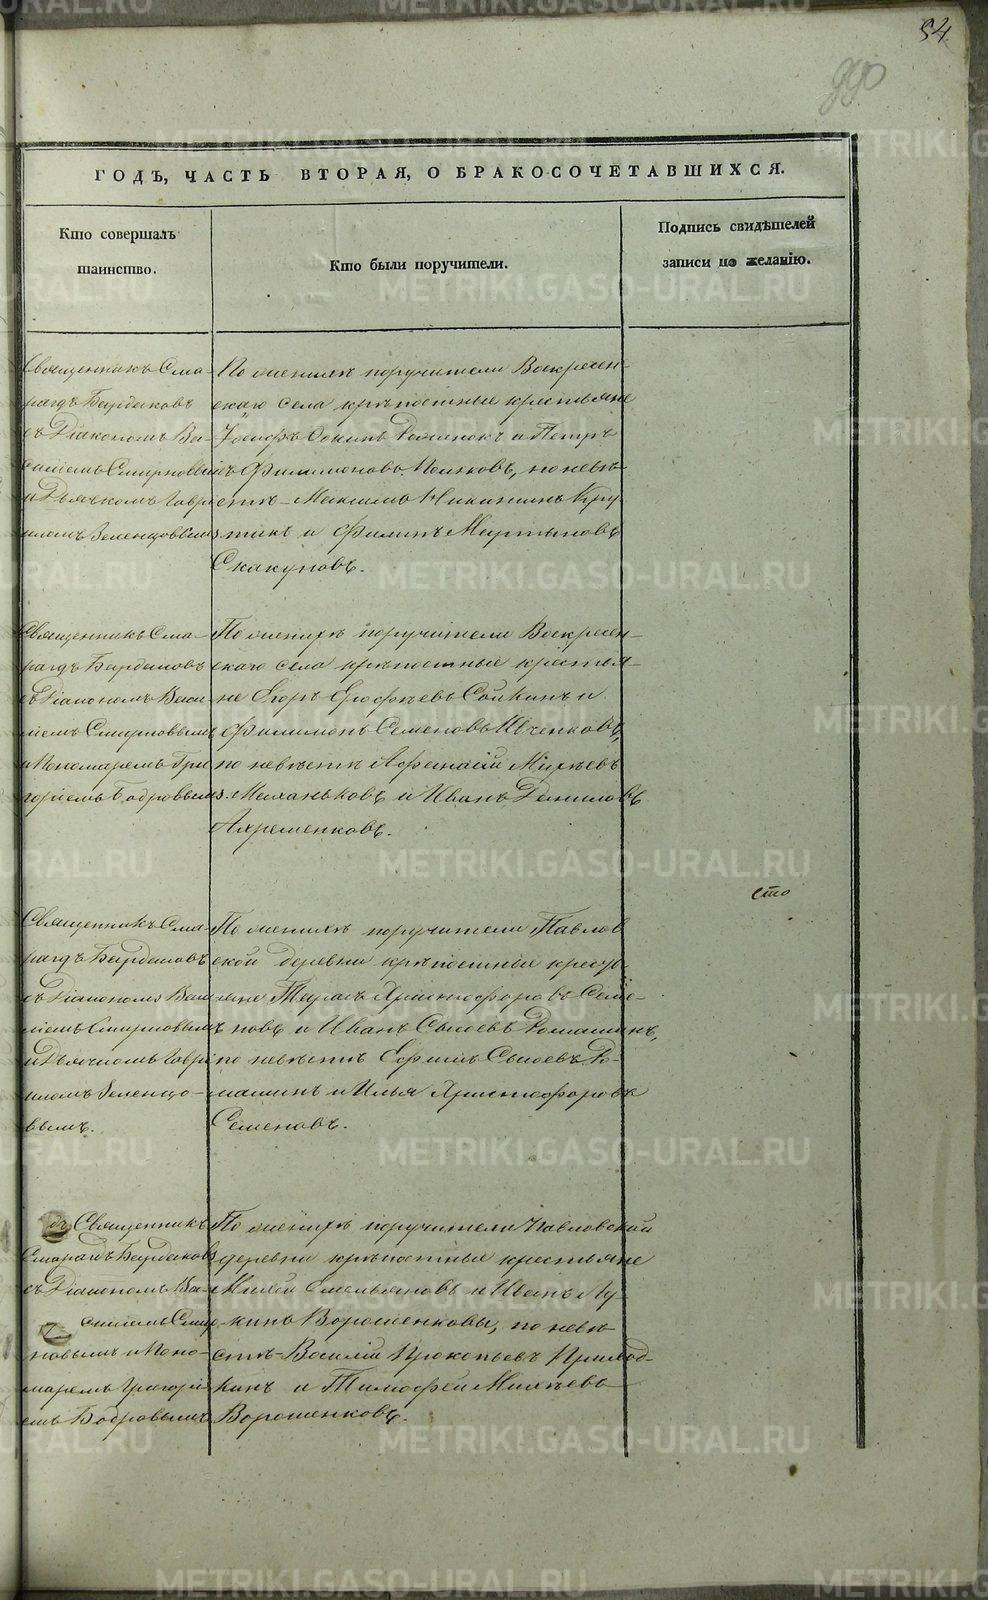 54
990
ГОДЪ, ЧАСТЬ ВТОРАЯ, О БРАКОСОЧЕТАВШИХСЯ.
Кто совершалъ
таинство.
Кто были поручители.
Подпись свидѣтелей
записи по желанію.
Священникъ Сма-
рагдъ Бардаковъ
съ Діакономъ Ва-
силіемъ Смирновым
и Дьячкомъ Гаврі
иломъ Зеленцовым
По женихѣ поручители Воскресен-
скаго села крѣпостные крестьяне
Іосифъ и Петръ
Филимоновъ по невѣ-
стѣ Максимъ Никитинъ
и Филипъ Мартыновъ
Скакуновъ.
Священникъ Сма-
рагдъ Бардаковъ
съ Діакономъ Васи-
ліемъ Смирновымъ
и Пономаремъ Гри
горіемъ Бобровым
По женихѣ поручители Воскресен-
скаго села крѣпостные крестья-
не Егоръ Ерофѣевъ Сойкинъ и
Филимонъ Семеновъ Ивченковъ,
по невѣстѣ Афанасій Михѣевъ
Маханьковъ и Иванъ Даниловъ
Ахременковъ.
сто
Священникъ Сма-
рагдъ Бардаковъ
съ Діакономъ Васи
ліемъ Смирновымъ
и Дьячкомъ Гаврі
иломъ Зеленцо-
вымъ.
По женихѣ поручители Павлов
ской деревни крѣпостные кресть
яне Тарасъ Христофоровъ Семе-
новъ и Иванъ Сысоевъ Ромашинъ,
по невѣстѣ Ефимъ Сысоевъ Ро-
машинъ и Илья Христофоровъ
Семеновъ.
Священникъ
Смарагдъ Бардаковъ
съ Діакономъ Ва-
силіемъ Смир
новымъ и Поно-
маремъ Григорі
емъ Бобровымъ
По женихѣ поручители Павловской
деревни крѣпостные крестьяне
Емельяновъ и Иванъ Лу
кинъ Ворошенковы, по невѣ
стѣ Василій Прокопьевъ Приход-
кинъ и Тимофей Михѣевъ
Ворошенковъ.
METRIKI.GASO-URAL.RU